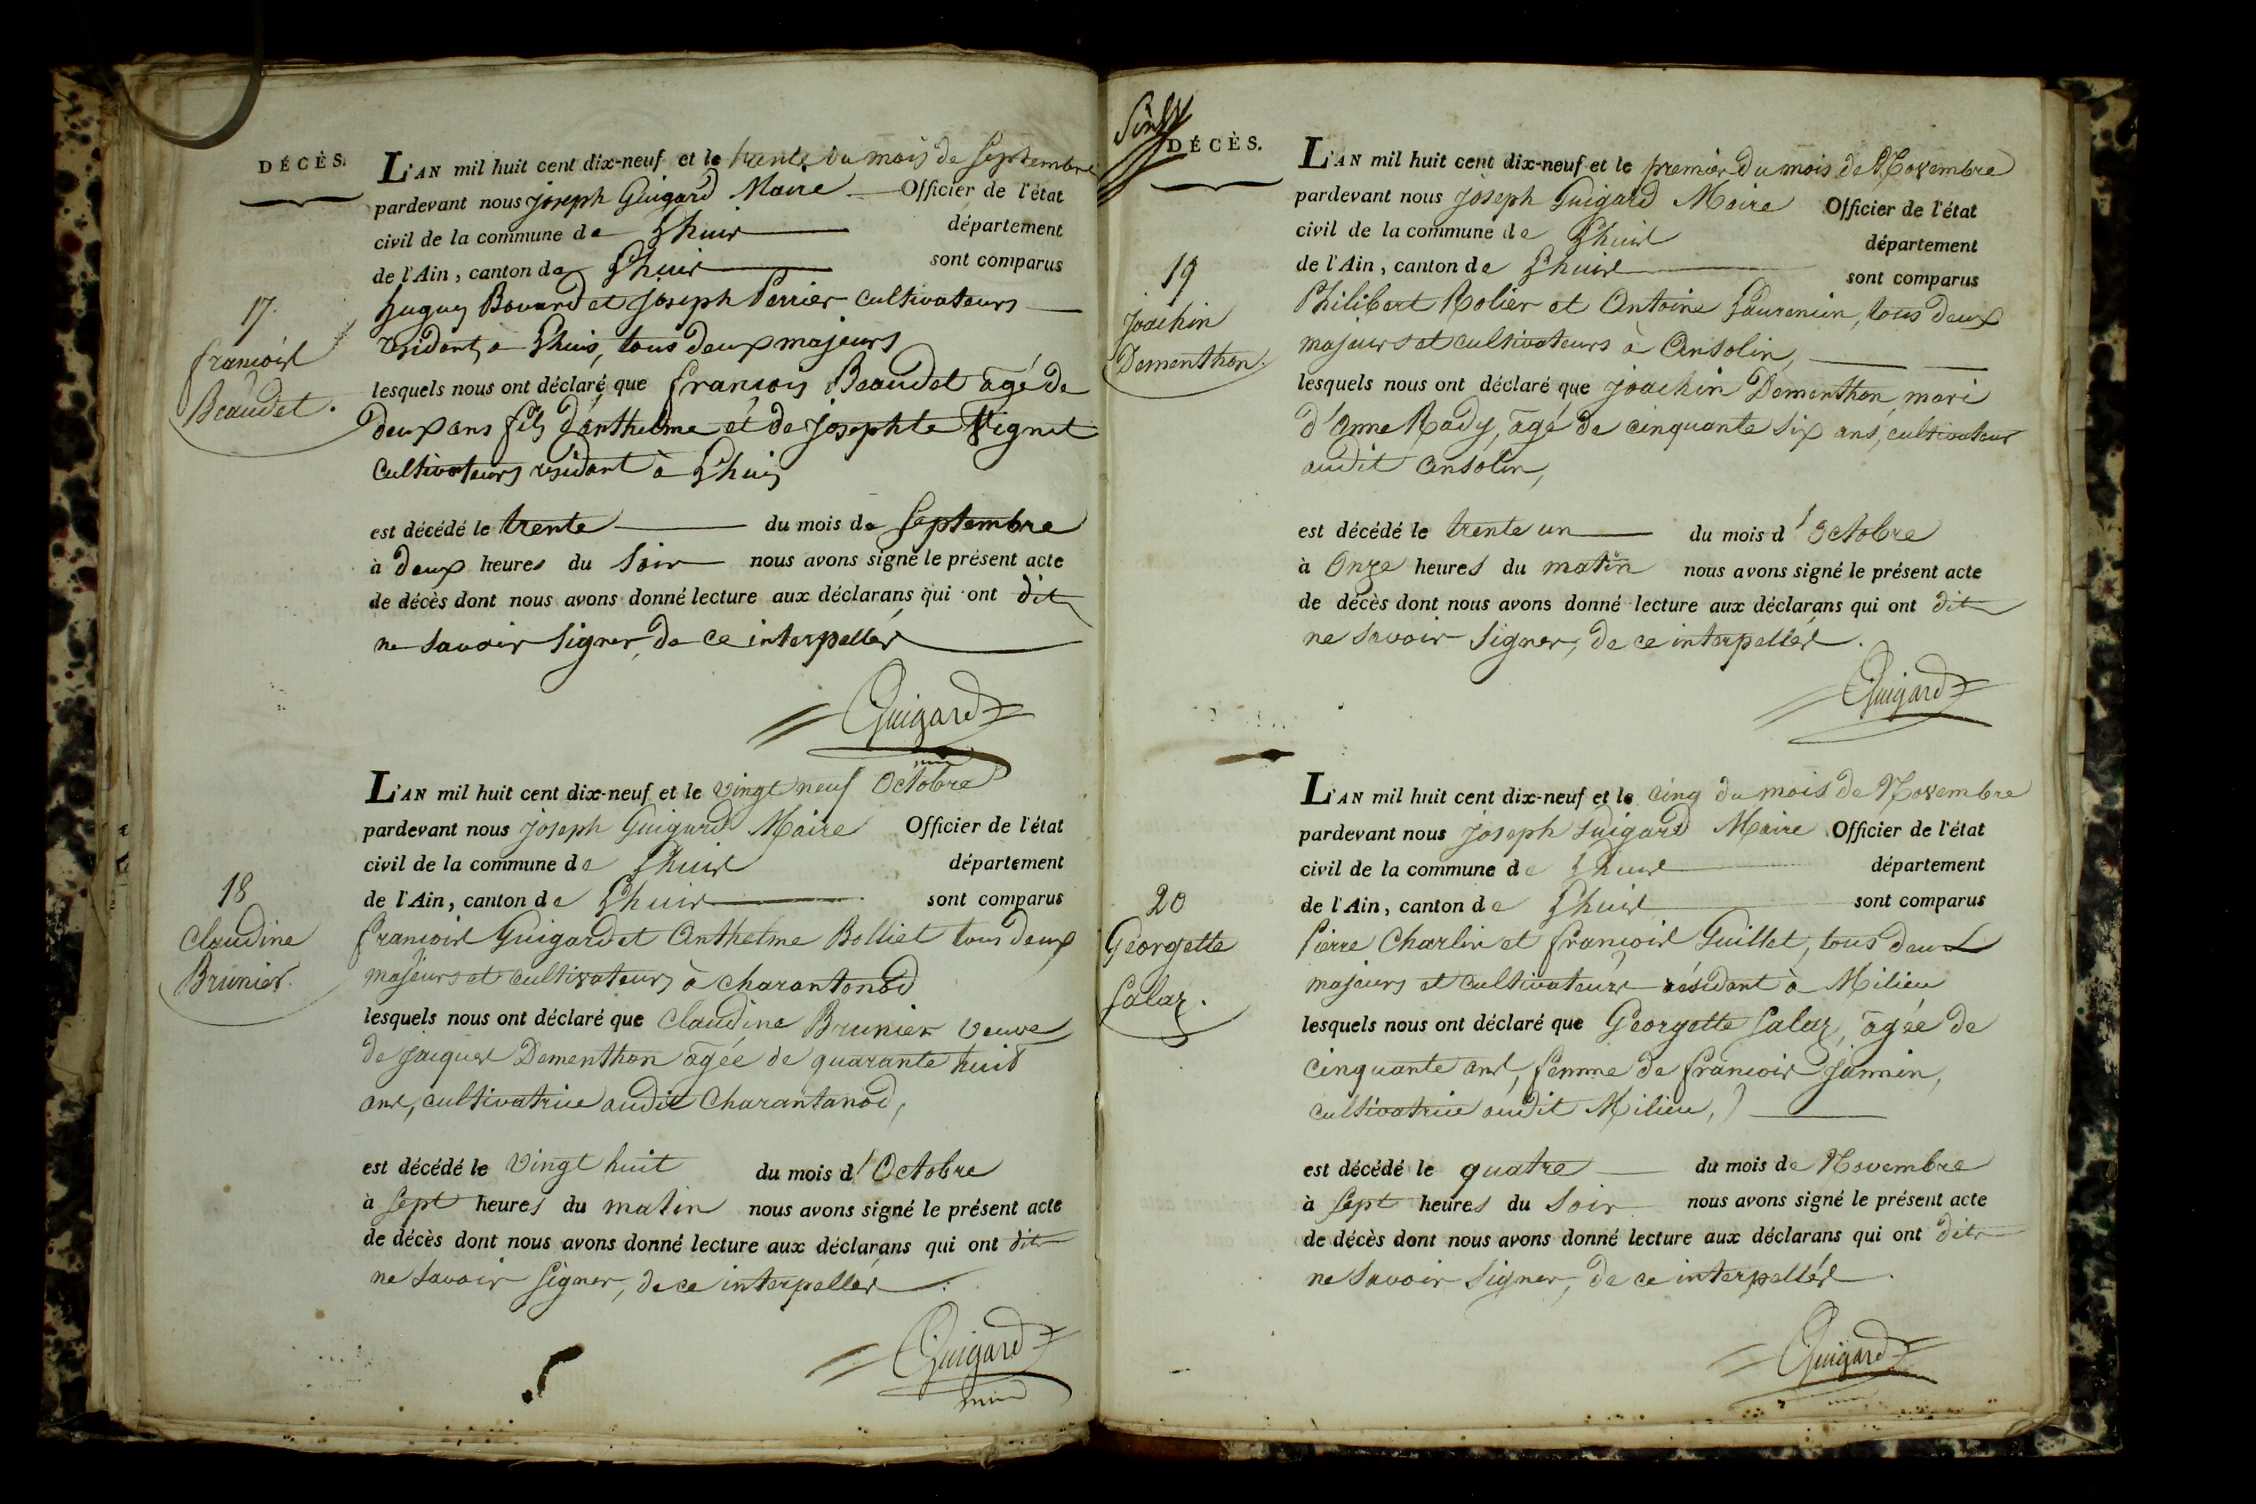 DÉCÈS.
L'AN mil huit cent dix-neuf et le trente du mois de Septembre
pardevant nous joseph Guigard Maire Officier de l'état
civil de la commune de Lhuis département
de l'Ain, canton de Lhuis sont comparus
17.
françois
Beaudet.
hugues Bovard et joseph Perrier cultivateurs
résidants à Lhuis, tous deux majeurs
lesquels nous ont déclaré que françois Beaudet âgé de
deux ans fils d'anthelme et de josephte Vignet
cultivateurs résidant à Lhuis
est décédé le trente du mois de Septembre
à deux heures du Soir nous avons signé le présent acte
de décès dont nous avons donné lecture aux déclarans qui ont dit
ne savoir signer, de ce interpellés
Guigard
L'AN mil huit cent dix-neuf et le vingt neuf Octobre
pardevant nous joseph Guigard Maire Officier de l'état
civil de la commune de Lhuis département
de l'Ain, canton de Lhuis sont comparus
18
Claudine
Brunier.
françois Guigard et Anthelme Bolliet tous deux
majeurs et cultivateurs à charantonod
lesquels nous ont déclaré que Claudine Brunier veuve
de jacques Dementhon agée de quarante huit
ans, cultivatrice audit Charantonod,
est décédé le vingt huit du mois d'Octobre
à sept heures du matin nous avons signé le présent acte
de décès dont nous avons donné lecture aux déclarans qui ont dit
ne savoir signer, de ce interpellés.
Guigard
DÉCÈS.
L'AN mil huit cent dix-neuf et le premier du mois de Novembre
pardevant nous joseph Guigard Maire Officier de l'état
civil de la commune de Lhuis département
de l'Ain, canton de Lhuis sont comparus
19
joachin
Dementhon.
Philibert Rolier et Antoine Laurencin, tous deux
majeurs et cultivateurs à Ansolin,
lesquels nous ont déclaré que joachin Dementhon, mari
d'Anne Rady, âgé de cinquante six ans, cultivateur
audit Ansolin,
est décédé le trente un du mois d'Octobre
à Onze heures du matin nous avons signé le présent acte
de décès dont nous avons donné lecture aux déclarans qui ont dit
ne savoir signer, de ce interpellés.
Guigard
L'AN mil huit cent dix-neuf et le cinq du mois de Novembre
pardevant nous joseph Guigard Maire Officier de l'état
civil de la commune de Lhuis département
de l'Ain, canton de Lhuis sont comparus
20
Georgette
Salaz.
Pierre Charlin et françois Guillet, tous deux
majeurs et cultivateurs résidant à Milieu
lesquels nous ont déclaré que Georgette Salaz, âgée de
cinquante ans, femme de françois Jannin,
cultivatrice audit Milieu,
est décédé le quatre du mois de Novembre
à sept heures du Soir nous avons signé le présent acte
de décès dont nous avons donné lecture aux déclarans qui ont dit
ne savoir signer, de ce interpellés.
Guigard